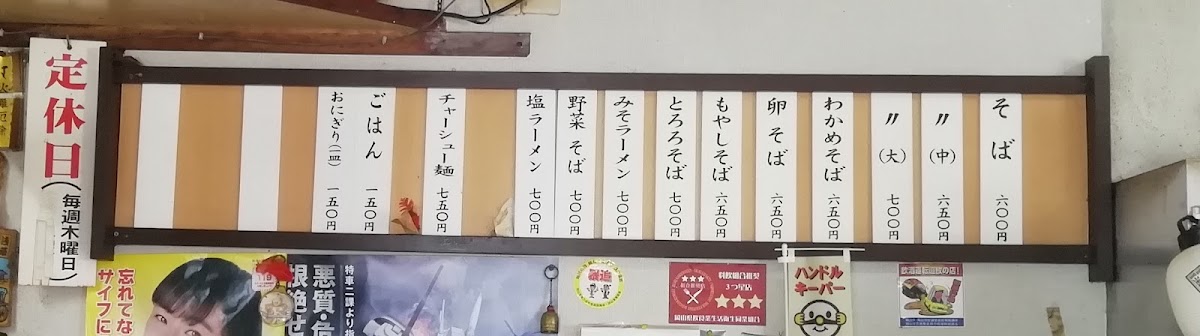 そば 六〇〇円
〃(中) 六五〇円
〃(大) 七〇〇円
わかめそば 六五〇円
卵そば 六五〇円
もやしそば 六五〇円
とろろそば 七〇〇円
みそラーメン 七〇〇円
野菜そば 七〇〇円
塩ラーメン 七〇〇円
チャーシュー麺 七五〇円
ごはん 一五〇円
おにぎり(一皿) 一五〇円
定休日(毎週木曜日)
忘れてな
サイフに
悪質・危
根絶せ
特車二課より
ハンドル
キーパー
3つ星店
★★★